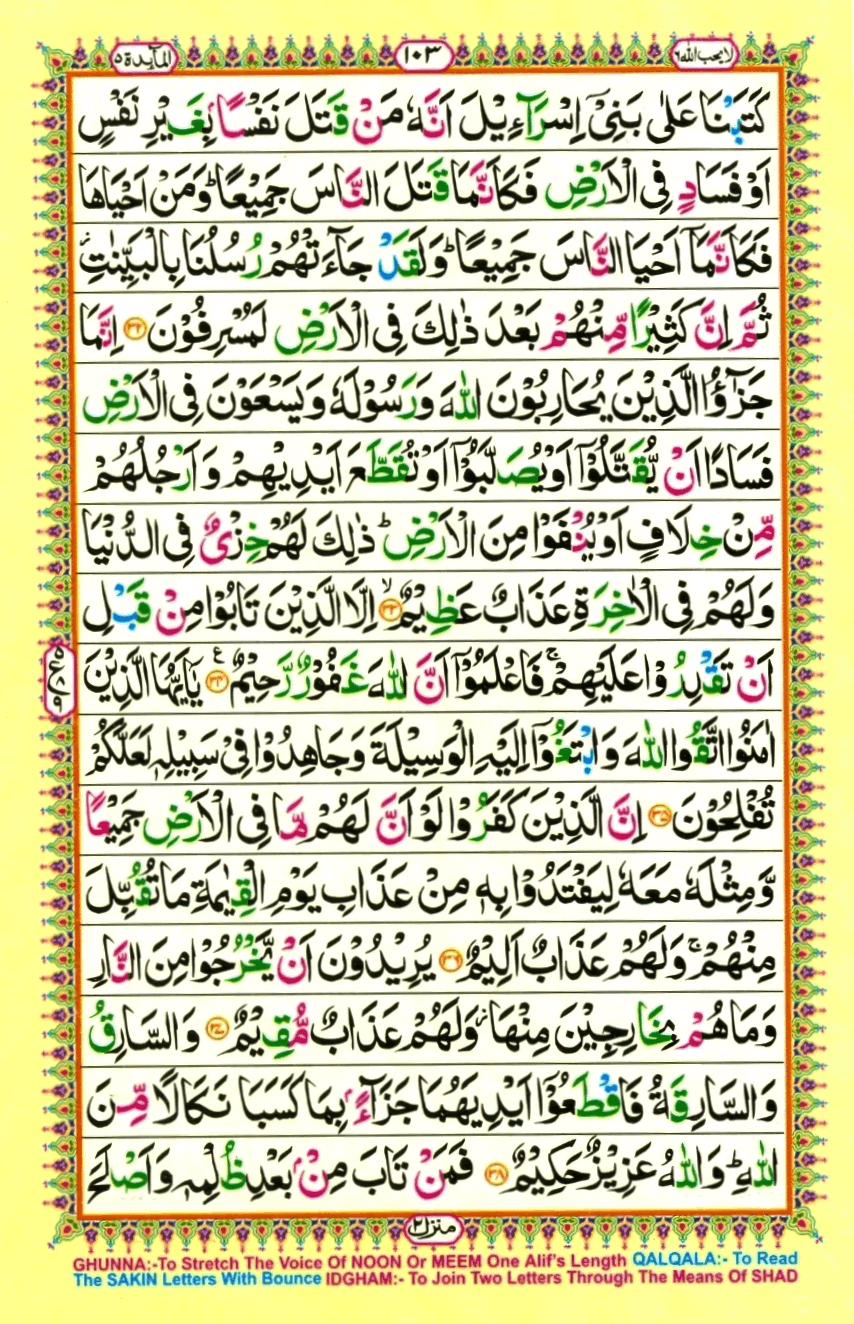 لا يحب الله ٦
١٠٣
المآيدة ٥
كَتَبْنَا عَلٰى بَنِىْٓ اِسْرَآءِيْلَ اَنَّهٗ مَنْ قَتَلَ نَفْسًا بِغَيْرِ نَفْسٍ
اَوْ فَسَادٍ فِى الْاَرْضِ فَكَاَنَّمَا قَتَلَ النَّاسَ جَمِيْعًا ؕ وَمَنْ اَحْيَاهَا
فَكَاَنَّمَاۤ اَحْيَا النَّاسَ جَمِيْعًا ؕ وَلَقَدْ جَآءَتْهُمْ رُسُلُنَا بِالْبَيِّنٰتِ ۫
ثُمَّ اِنَّ كَثِيْرًا مِّنْهُمْ بَعْدَ ذٰلِكَ فِى الْاَرْضِ لَمُسْرِفُوْنَ ﴿۳۲﴾ اِنَّمَا
جَزٰٓؤُا الَّذِيْنَ يُحَارِبُوْنَ اللّٰهَ وَرَسُوْلَهٗ وَيَسْعَوْنَ فِى الْاَرْضِ
فَسَادًا اَنْ يُّقَتَّلُوْۤا اَوْ يُصَلَّبُوْۤا اَوْ تُقَطَّعَ اَيْدِيْهِمْ وَاَرْجُلُهُمْ
مِّنْ خِلَافٍ اَوْ يُنْفَوْا مِنَ الْاَرْضِ ؕ ذٰلِكَ لَهُمْ خِزْىٌ فِى الدُّنْيَا
وَلَهُمْ فِى الْاٰخِرَةِ عَذَابٌ عَظِيْمٌ ﴿۳۳﴾ ۙ اِلَّا الَّذِيْنَ تَابُوْا مِنْ قَبْلِ
اَنْ تَقْدِرُوْا عَلَيْهِمْ ۚ فَاعْلَمُوْۤا اَنَّ اللّٰهَ غَفُوْرٌ رَّحِيْمٌ ﴿۳۴﴾ ۧ يٰۤاَيُّهَا الَّذِيْنَ
اٰمَنُوا اتَّقُوا اللّٰهَ وَابْتَغُوْۤا اِلَيْهِ الْوَسِيْلَةَ وَجَاهِدُوْا فِىْ سَبِيْلِهٖ لَعَلَّكُمْ
تُفْلِحُوْنَ ﴿۳۵﴾ اِنَّ الَّذِيْنَ كَفَرُوْا لَوْ اَنَّ لَهُمْ مَّا فِى الْاَرْضِ جَمِيْعًا
وَّمِثْلَهٗ مَعَهٗ لِيَفْتَدُوْا بِهٖ مِنْ عَذَابِ يَوْمِ الْقِيٰمَةِ مَا تُقُبِّلَ
مِنْهُمْ ۚ وَلَهُمْ عَذَابٌ اَلِيْمٌ ﴿۳۶﴾ يُرِيْدُوْنَ اَنْ يَّخْرُجُوْا مِنَ النَّارِ
وَمَا هُمْ بِخَارِجِيْنَ مِنْهَا ۫ وَلَهُمْ عَذَابٌ مُّقِيْمٌ ﴿۳۷﴾ وَالسَّارِقُ
وَالسَّارِقَةُ فَاقْطَعُوْۤا اَيْدِيَهُمَا جَزَآءًۢ بِمَا كَسَبَا نَكَالًا مِّنَ
اللّٰهِ ؕ وَاللّٰهُ عَزِيْزٌ حَكِيْمٌ ﴿۳۸﴾ فَمَنْ تَابَ مِنْۢ بَعْدِ ظُلْمِهٖ وَاَصْلَحَ
منزل ٢
GHUNNA:-To Stretch The Voice Of NOON Or MEEM One Alif's Length QALQALA:- To Read
The SAKIN Letters With Bounce IDGHAM:- To Join Two Letters Through The Means Of SHAD